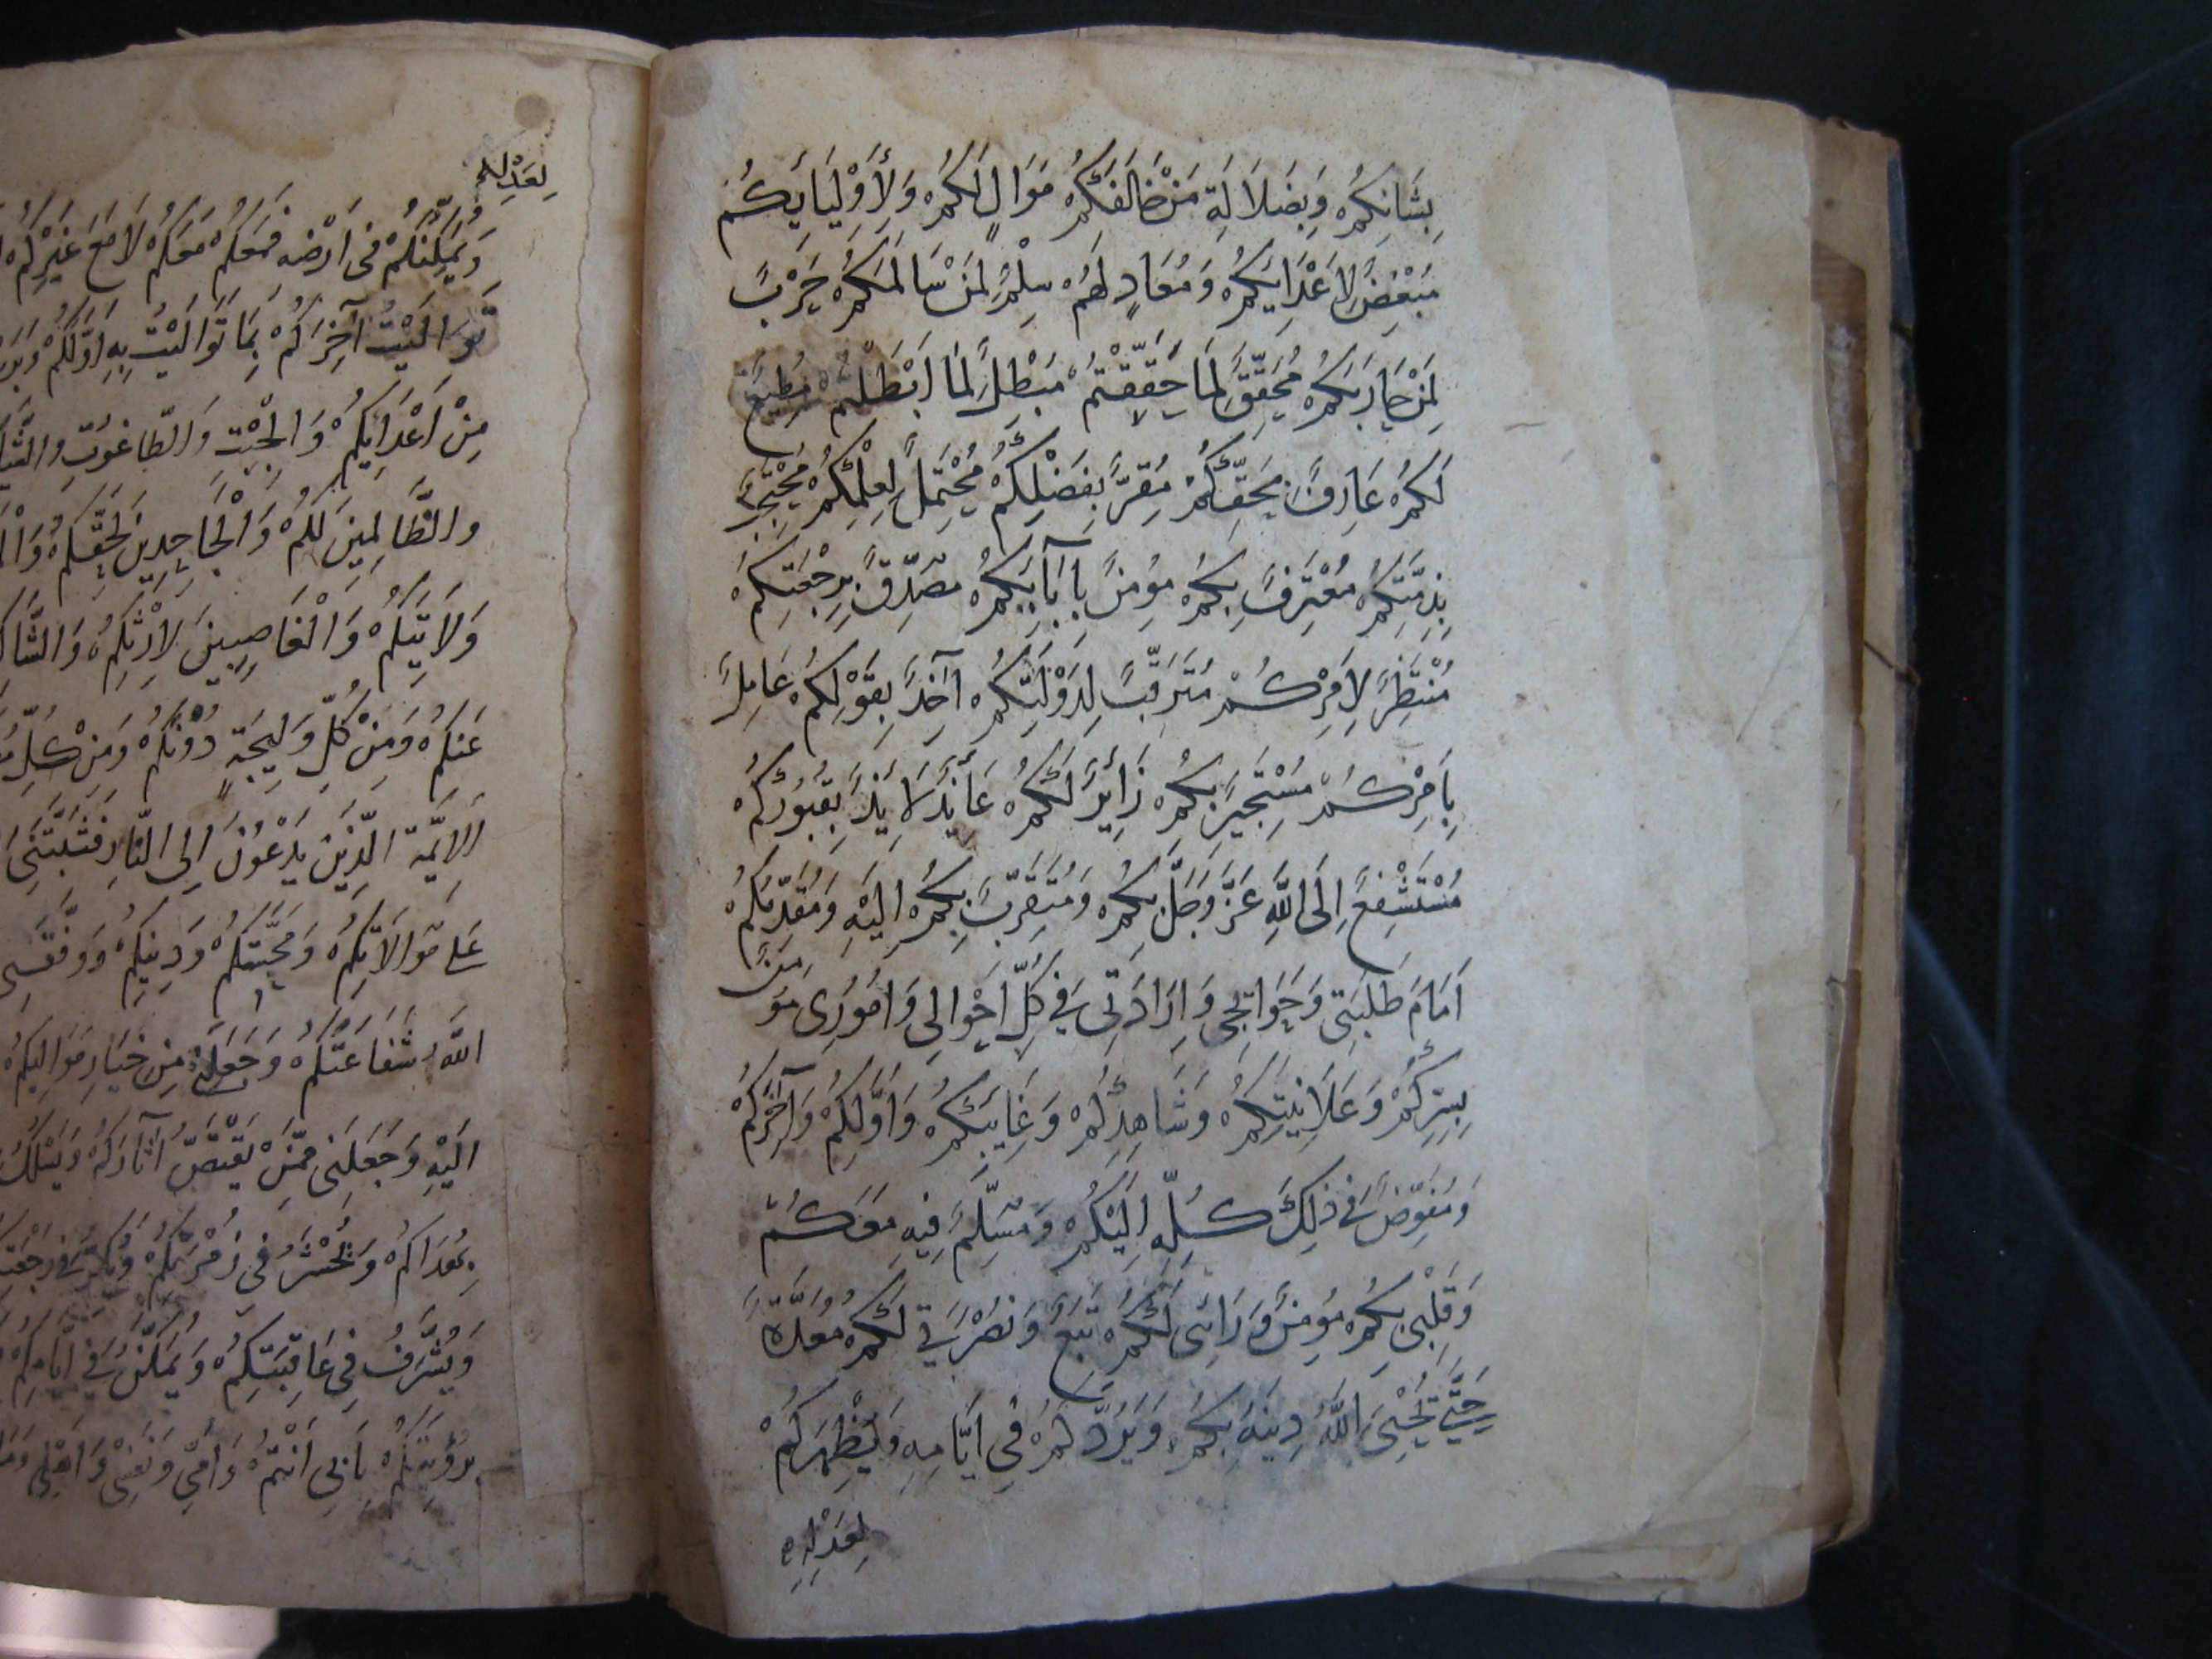 بِشَانِكُمْ وَبِضَلَالَةِ مَنْ خَالَفَكُمْ مَوَالٍ لَكُمْ وَلِأَوْلِيَايِكُمْ
مُبْغِضٌ لِاَعْدَايِكُمْ وَمُعَادٍ لَهُمْ سِلْمٌ لِمَنْ سَالَمَكُمْ حَرْبً
لِمَنْ حَارَبَكُمْ مُحَقِّقً لِمَا حَقَّقْتُمْ مُبْطِلً لِمَا اَبْطَلْتُمْ مُطِيعً
لَكُمْ عَارِفً بِحَقِّكُمْ مُقِرً بِفَضْلِكُمْ مُحْتَمِلً لِعِلْمِكُمْ مُحْتَجِبً
بِذِمَّتِكُمْ مُعْتَرِفً بِكُمْ مُؤمِنً بِاِيَابِكُمْ مُصَدِّقً بِرِجْعَتِكُمْ
مُنْتَظِرً لِاَمْرِكُمْ مُتَرَقِّبً لِدَوْلَتِكُمْ اآخِذً بِقَوْلِكُمْ عَامِلً
بِاَمْرِكُمْ مُسْتَجِيرً بِكُمْ زَايِرً لَكُمْ عَايِذً لَايِذً بِقُبُورِكُمْ
مُسْتَشْفِعً اِلَى اللَّهِ عَزَّ وَجَلَّ بِكُمْ وَمُتَقَرِّبً بِكُمْ اِلَيْهِ وَمُقَدِّمُكُمْ
اَمَامَ طَلِبَتِي وَحَوَايِجِي وَاِرَادَتِي فِي كُلِّ اَحْوَالِي وَاُمُورِي مُؤمِنً
بِسِرِّكُمْ وَعَلَانِيَتِكُمْ وَشَاهِدِكُمْ وَغَايِبِكُمْ وَاَوَّلِكُمْ وَآخِرِكُمْ
وَمُفَوِّضً فِي ذٰلِكَ كُلِّهِ اِلَيْكُمْ وَمُسَلِّمً فِيهِ مَعَكُمْ
وَقَلْبِي بِكُمْ مُؤمِنً وَرَائِي لَكُمْ تَبَعً وَنُصْرَتِي لَكُمْ مُعَدَّةً
حَتَّى يُحْيِيَ اللَّهُ دِينَهُ بِكُمْ وَيَرُدَّكُمْ فِي اَيَّامِهِ وَيُظْهِرَكُمْ
لِعَدْلِهِ
لِعَدْلِهِ
وَيُمَكِّنَكُمْ فِي اَرْضِهِ فَمَعَكُمْ مَعَكُمْ لَا مَعَ غَيْرِكُمْ
تَوَالَيْتُ آخِرَكُمْ بِمَا تَوَالَيْتُ بِهِ اَوَّلَكُمْ
مِنْ اَعْدَايِكُمْ وَالْجِبْتِ وَالطَّاغُوتِ
وَالظَّالِمِينَ لَكُمْ وَالْجَاحِدِينَ لِحَقِّكُمْ
وَلَايَتِكُمْ وَالْغَاصِبِينَ لِاِرْثِكُمْ
عَنْكُمْ وَمِنْ كُلِّ وَلِيجَةٍ دُونَكُمْ وَمِنْ كُلِّ
الْاَيِمَّةِ الَّذِينَ يَدْعُونَ اِلَى النَّارِ فَثَبَّتَنِي
عَلَى مَوَالَاتِكُمْ وَمَحَبَّتِكُمْ وَدِينِكُمْ وَوَفَّقَنِي
اللَّهُ شَفَاعَتَكُمْ وَجَعَلَنِي مِنْ خِيَارِ مَوَالِيكُمْ
اِلَيْهِ وَجَعَلَنِي مِمَّنْ يَقْتَصُّ آثَارَكُمْ وَيَسْلُكُ
بِهُدَاكُمْ وَيُحْشَرُ فِي زُمْرَتِكُمْ وَيَكِرُّ فِي رَجْعَتِكُمْ
وَيُشَرَّفُ فِي عَافِيَتِكُمْ وَيُمَكَّنُ فِي اَيَّامِكُمْ
بِرُؤيَتِكُمْ بِاَبِي اَنْتُمْ وَاُمِّي وَنَفْسِي وَاَهْلِي